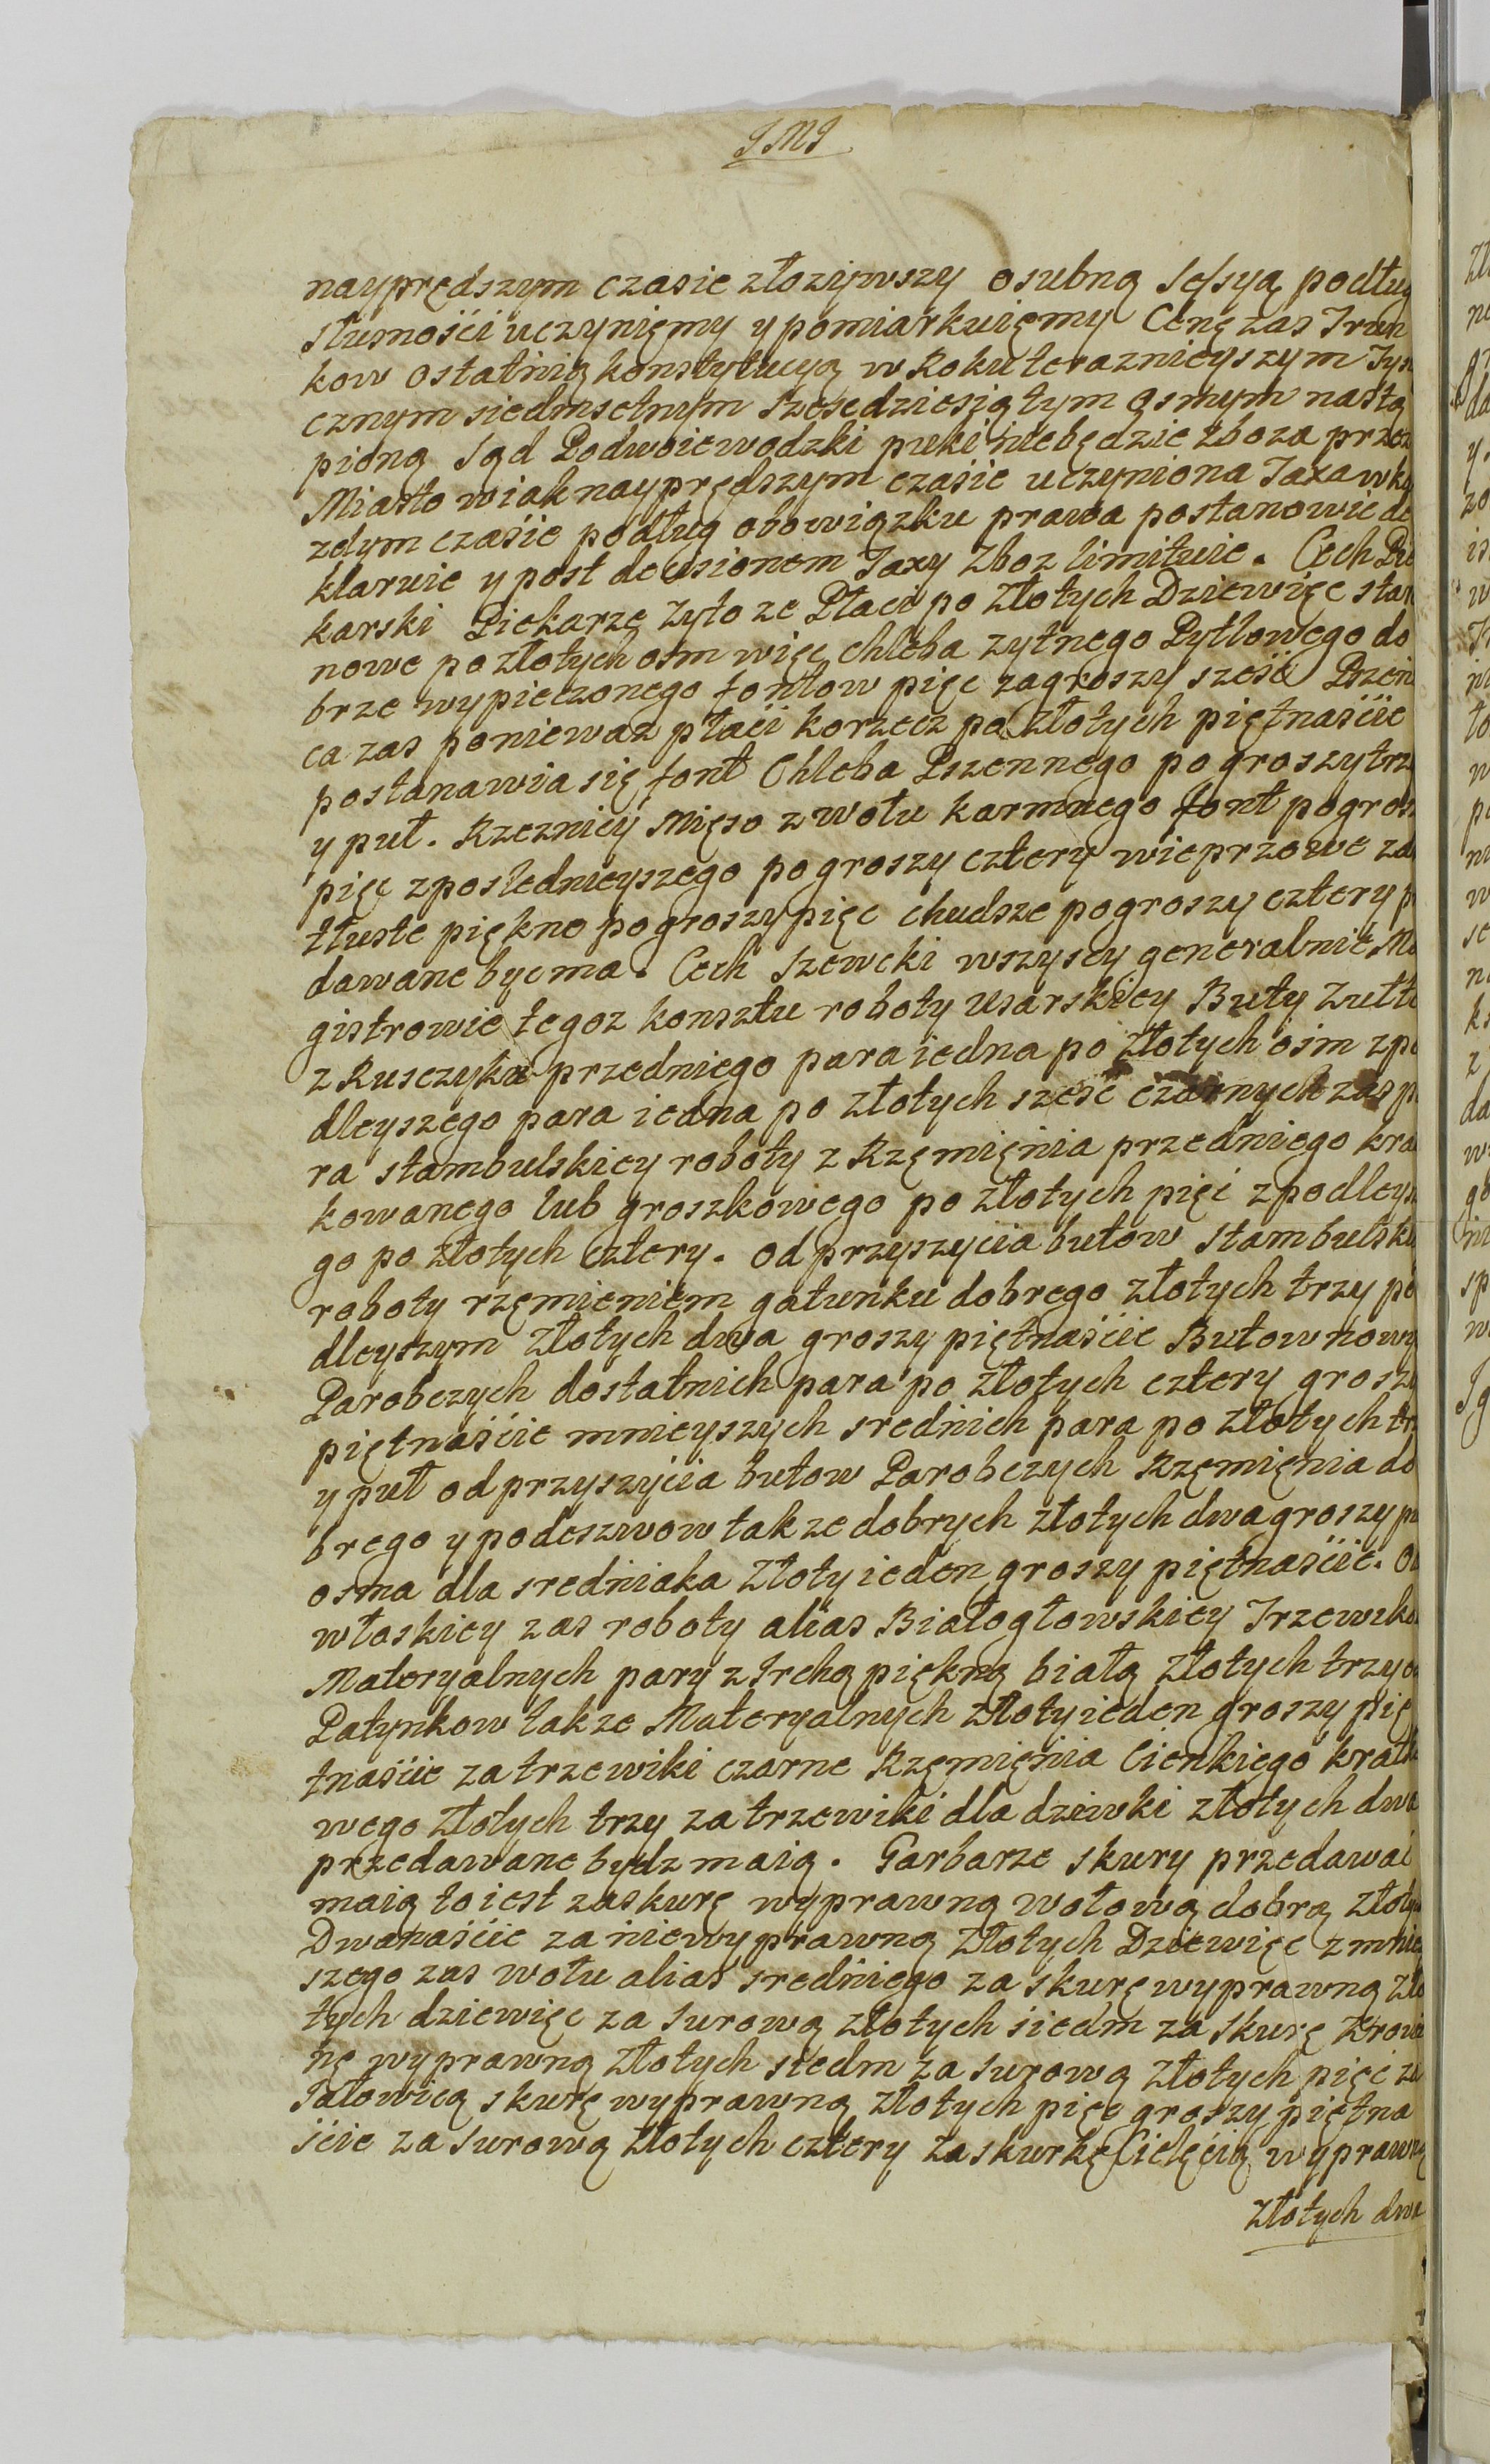 JMJ
nayprędszym czasie złozywszy osubną Sessyą podług
słusnośći uczynięmy y pomiarkuięmy Cenę zas Trun
kow ostatnią konstytucyą w Roku teraznieyszym Tysi
cznym siedmsetnym szesedziesiątym osmym nastą
pioną Sąd Podwoiewodzki puki niebędzie zboza przez
Miasto wiak nayprędszym czasie uczyniona Taxa w ka
zdym czasie podług obowiązku prawa postanowic de
klaruie y post decisionem Taxy Zboz limituie. Cech Pie
karski Piekarze zyto ze Płaci po Złotych Dziewięc star
nowe po złotych osm więc chleba zytnego Pytlowego do
brze wypieczonego fontow pięc zagroszy sześć Pszeni
ca zas poniewaz płaći korzecz po Złotych piętnaśćie
postanawia się font Chleba Pszennego po groszy trzy
y puł. Rzeznicy Mięso z wołu karmnego font pogroszy
pięc zposlednieyszego po groszy cztery wieprzowe zas
tłuste piękno pogroszy pięc chudsze pogroszy cztery p
dawane byc ma. Cech Szewcki wszyscy generalnie Ma
gistrowie tegoz konsztu roboty Usarskiey Buty Zułte
z Kusczyka przedniego para iedna po złotych ośm zpo
dleyszego para iedna po złotych sześć czarnych zas pa
ra stambulskiey roboty z Rzęmięnia przedniego kra
kowanego lub groszkowego po złotych pięć zpodleysze
go po złotych cztery. od przyszycia butow stambulskiey
roboty rzęmieniem gatunku dobrego złotych trzy po
dleyszym złotych dwa groszy piętnaśćie Butow nowy
Parobczych dostatnich para po złotych cztery groszy
piętnaśćie mnieyszych srednich para po złotych trz
y puł od przyszyćia butow Parobczych Rzęmięnia do
brego y podeszwow takze dobrych złotych dwa groszy pu
osma dla sredniaka Złoty ieden groszy piętnaśćie. Od
włoskiey zas roboty alias Białogłowskiey Trzewiko
Materyalnych pary z Irchą piękną białą złotych trzy od
Patynkow takze Materyalnych złoty ieden groszy pię
tnaśćie za trzewiki czarne Rzęmięnia Cienkiego kratk
wego złotych trzy za trzewiki dla dziwki złotych dwa
przedawane bydz maią. Garbarze skury przedawać
maią to iest za skurę wyprawną wołową dobrą złotych
Dwanaśćie za niewyprawną Złotych Dziewięc z mniey
szego zas wołu alias sredniego za skurę wyprawną zło
tych dziewięc za surową złotych siedm za skurę krowi
nę wyprawną złotych siedm za surową złotych pięć za
Jałowicą skurę wyprawną złotych pięc groszy piętna
śćie za surową złotych cztery za skurkę Cielęcią wyprawną
złotych dwa